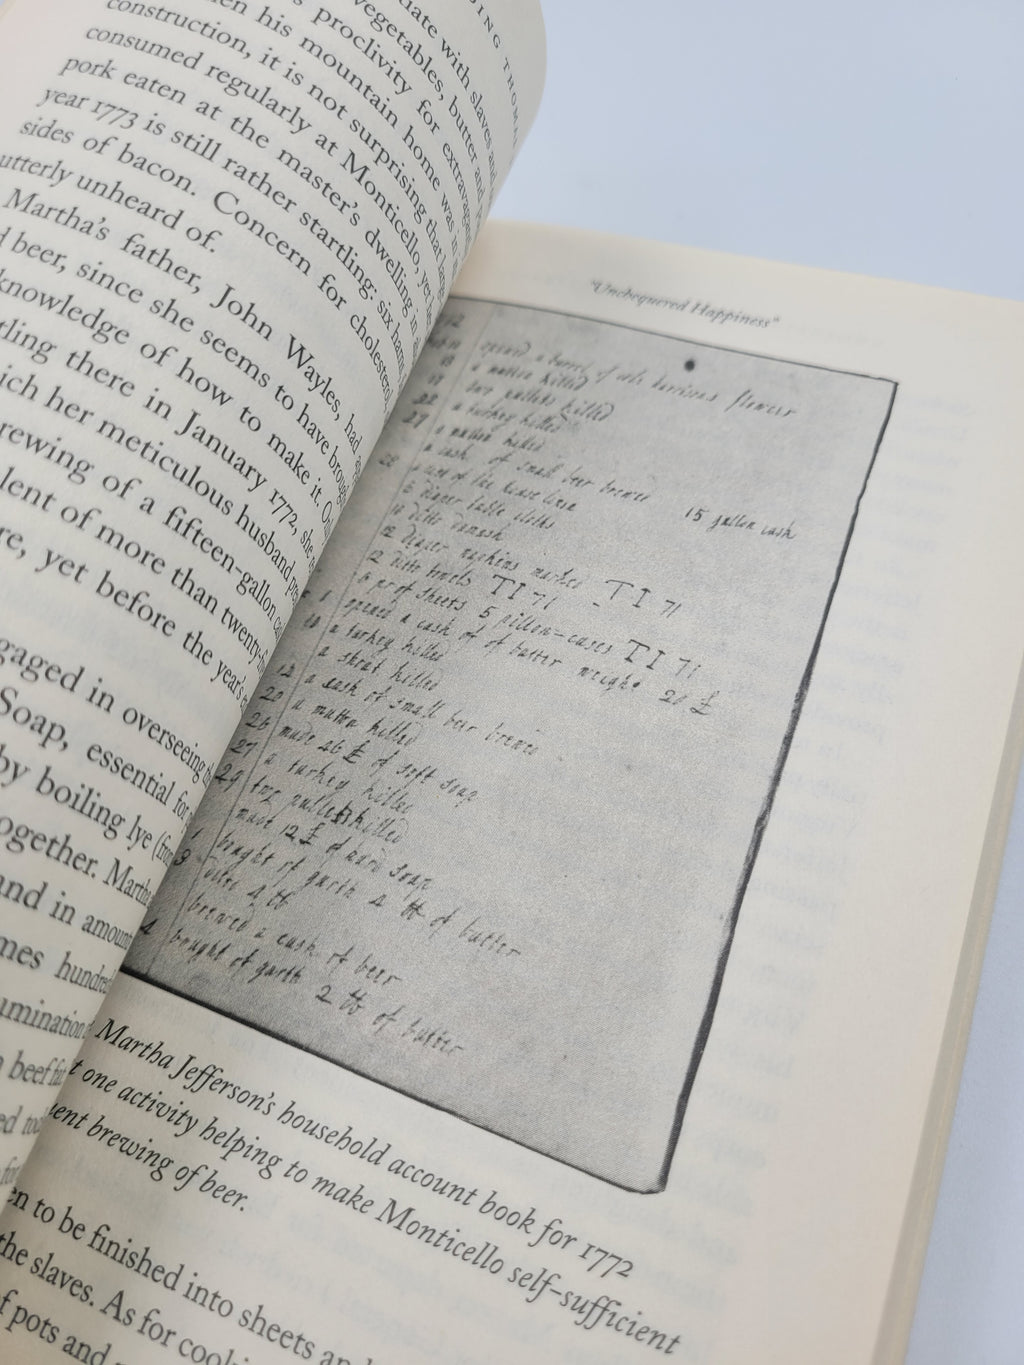 DING THOMA
uate with slaves and
vegetables, butter and
's proclivity for extravagan
en his mountain home was in
construction, it is not surprising that lar
consumed regularly at Monticello, yet
pork eaten at the master's dwelling in
year 1773 is still rather startling: six hams
sides of bacon. Concern for cholesterol
utterly unheard of.
Martha's father, John Wayles, had
d beer, since she seems to have brough
knowledge of how to make it. On
tling there in January 1772, she
ich her meticulous husband
rewing of a fifteen-gallon
lent of more than twenty-
re, yet before the year's
gaged in overseeing
Soap, essential for
by boiling lye (fro
ogether. Martha
and in amoun
mes hundred
umination
n beef
ed
for
en to be finished into sheets an
the slaves. As for cooki
f pots and
"Unchequered Happiness"
opened a barrel of harrisons flower
18 a mutton killed
17 two pullets killed
22 a turkey killed
27 a mutton killed
a cask of small beer brewed 15 gallon cask
28 of the house linen
6 diaper table cloths
10 ditto damask
12 diaper napkins marked TI 71
12 ditto towels TI 71
6 pr of sheets 5 pillow-cases TI 71
1 opened a cask of butter weighs 20 £
10 a turkey killed
a shoat killed
12 a cask of small beer brewed
20 a mutton killed
26 made 46 £ of soft soap
27 a turkey killed
29 two pullets killed
made 12 £ of hard soap
1 bought of garth 4 ℔ of butter
3 ditto 4 ℔
brewed a cask of beer
4 bought of garth 2 ℔ of butter
Martha Jefferson's household account book for 1772
t one activity helping to make Monticello self-sufficient
uent brewing of beer.